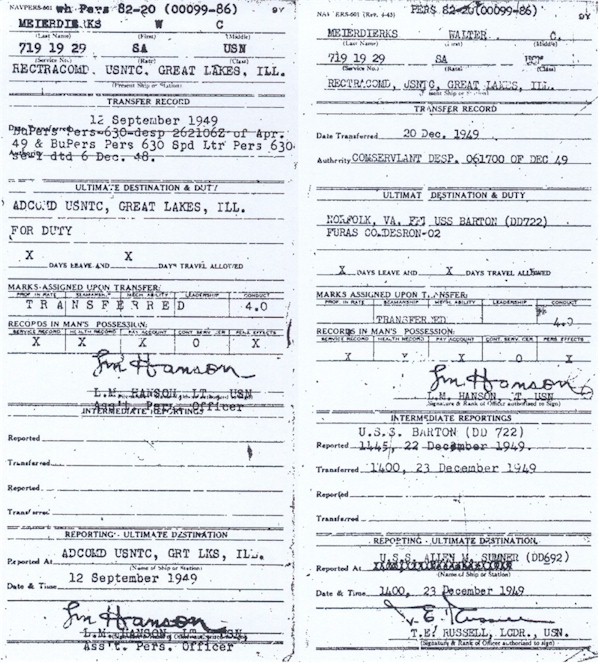 NAVPERS-601 wh Pers 82-20 (00099-86)
MEIERDIERKS W C
(Last Name) (First) (Middle)
719 19 29 SA USN
(Service No.) (Rate) (Class)
RECTRACOMD. USNTC, GREAT LAKES, ILL.
(Present Ship or Station)
TRANSFER RECORD
12 September 1949
BuPers Pers-630-desp 262106Z of Apr.
49 & BuPers Pers 630 Spd Ltr Pers 630-
dtd 6 Dec. 48.
ULTIMATE DESTINATION & DUTY
ADCOMD USNTC, GREAT LAKES, ILL.
FOR DUTY
X X
DAYS LEAVE AND DAYS TRAVEL ALLOWED
MARKS ASSIGNED UPON TRANSFER:
PROF. IN RATE SEAMANSHIP MECH. ABILITY LEADERSHIP CONDUCT
TRANSFERRED 4.0
RECORDS IN MAN'S POSSESSION:
SERVICE RECORD HEALTH RECORD PAY ACCOUNT CONT. SERV. CER PERS. EFFECTS
X X X O X
L M Hanson
L.M. HANSON, LT., USN
Ass't. Pers. Officer
INTERMEDIATE REPORTINGS
Reported
Transferred
Reported
Transferred
REPORTING - ULTIMATE DESTINATION
Reported At ADCOMD USNTC, GRT LKS, ILL.
(Name of Ship or Station)
Date & Time 12 September 1949
L M Hanson
L.M. HANSON, LT., USN
Ass't. Pers. Officer
NAVPERS-601 (Rev. 4-43) PERS 82-20(00099-86)
MEIERDIERKS WALTER C.
(Last Name) (First) (Middle)
719 19 29 SA
(Service No.) (Rate) (Class)
RECTRACOMD, USNTC, GREAT LAKES, ILL.
(Present Ship or Station)
TRANSFER RECORD
Date Transferred 20 Dec. 1949
Authority COMSERVLANT DESP. 061700 OF DEC 49
ULTIMAT DESTINATION & DUTY
NORFOLK, VA. FFT USS BARTON (DD722)
FURAS CO.DESRON-02
X X
DAYS LEAVE AND DAYS TRAVEL ALLOWED
MARKS ASSIGNED UPON TRANSFER:
PROF. IN RATE SEAMANSHIP MECH. ABILITY LEADERSHIP CONDUCT
TRANSFER.ED 4.0
RECORDS IN MAN'S POSSESSION:
SERVICE RECORD HEALTH RECORD PAY ACCOUNT CONT. SERV. CER PERS. EFFECTS
X X X O X
L M Hanson
L.M. HANSON, LT. USN
(Signature & Rank of Officer authorized to Sign)
INTERMEDIATE REPORTINGS
U.S.S. BARTON (DD 722)
Reported 1445, 22 December 1949.
Transferred 1400, 23 December 1949
Reported
Transferred
REPORTING - ULTIMATE DESTINATION
U.S.S. ALLEN M. SUMNER (DD692)
Reported At
(Name of Ship or Station)
Date & Time 1400, 23 December 1949
T.E. RUSSELL, LCDR., USN.
(Signature & Rank of Officer authorized to sign)